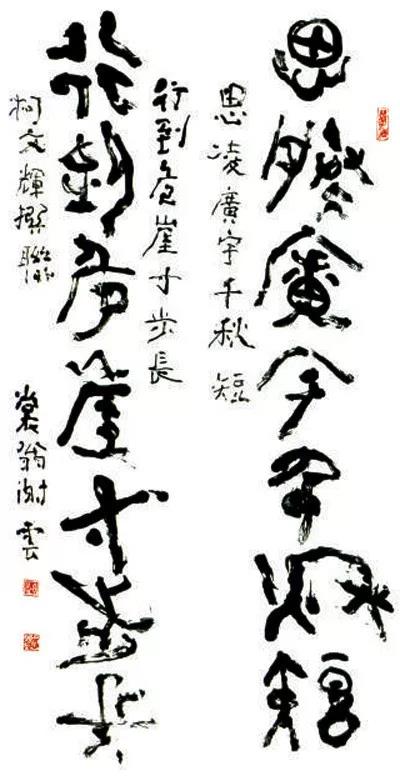 思凌廣宇千秋短
思凌廣宇千秋短
行到危崖寸步長
行到危崖寸步長
柯文輝撰聯
裳翁謝雲